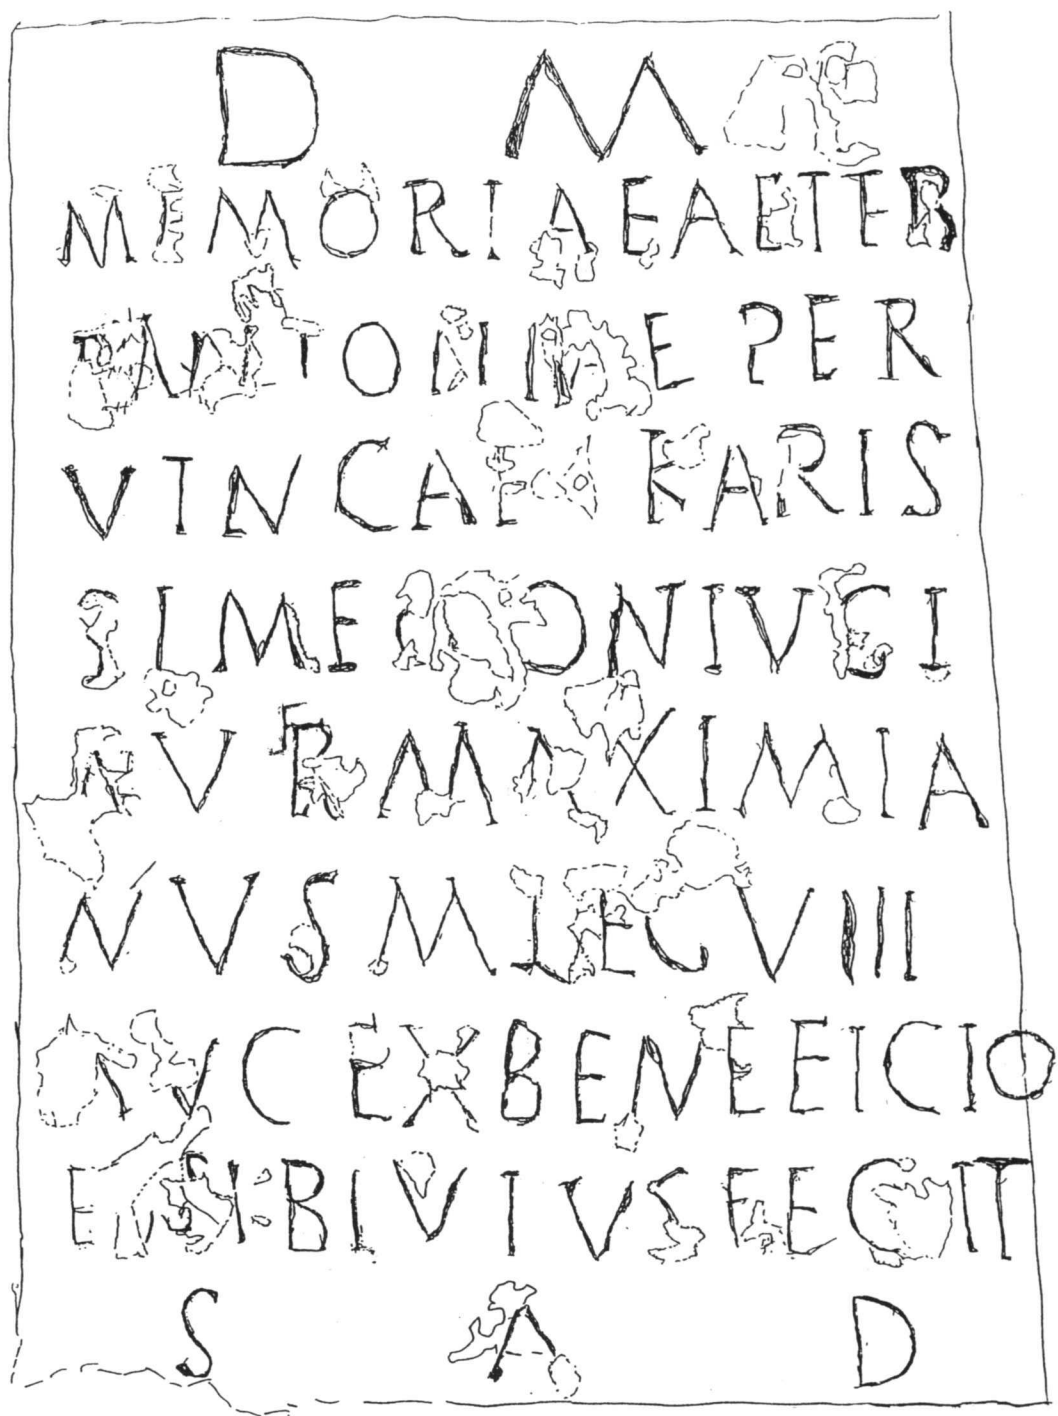 D M
MEMORIAEAETER
ANTONINE PER
VINCAE KARIS
SIME CONIVGI
AVR MAXIMIA
NVS M LEG VIII
AVG EX BENEFICIO
SIBI VIVS FECIT
S A D